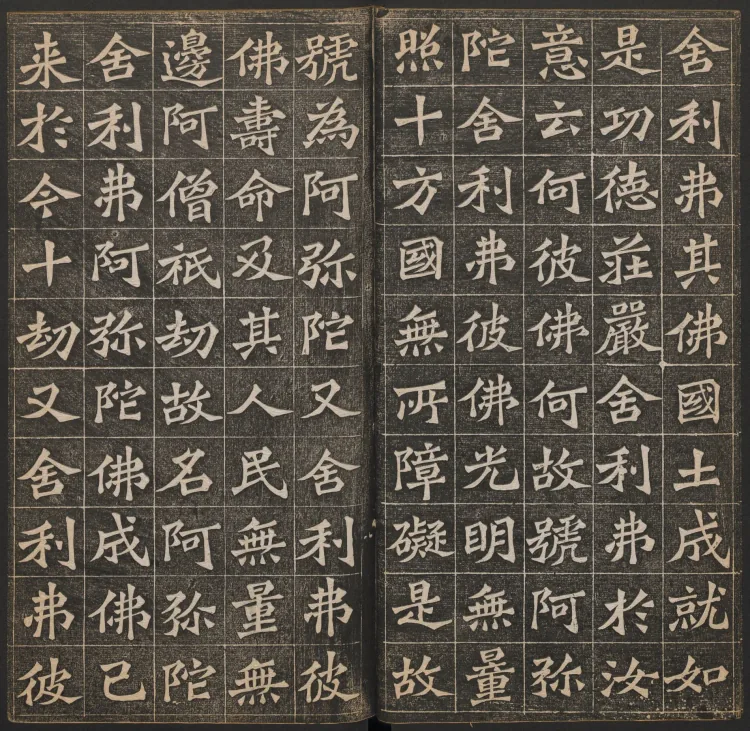 舍利弗其佛國土成就如
是功德莊嚴舍利弗於汝
意云何彼佛何故號阿弥
陀舍利弗彼佛光明無量
照十方國無所障礙是故
號為阿弥陀又舍利弗彼
佛壽命及其人民無量無
邊阿僧祇劫故名阿弥陀
舍利弗阿弥陀佛成佛已
来於今十劫又舍利弗彼